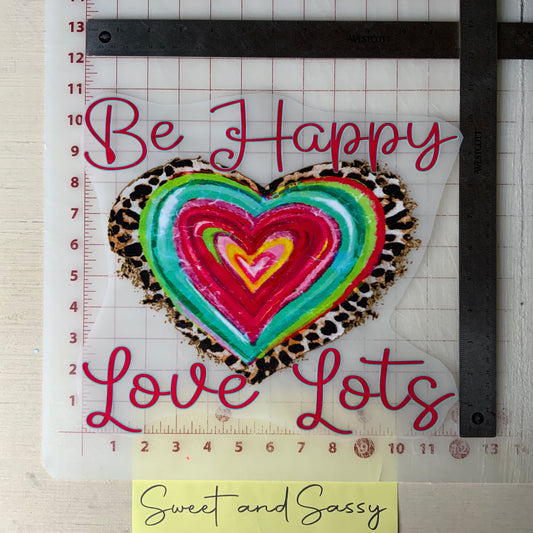 13
12
WESTCOTT
11
10
Be Happy
WESTCOTT
9
8
7
6
5
4
3
2
Love Lots
1
1 2 3 4 5 6 7 8 9 10 11 12 13
Sweet and Sassy